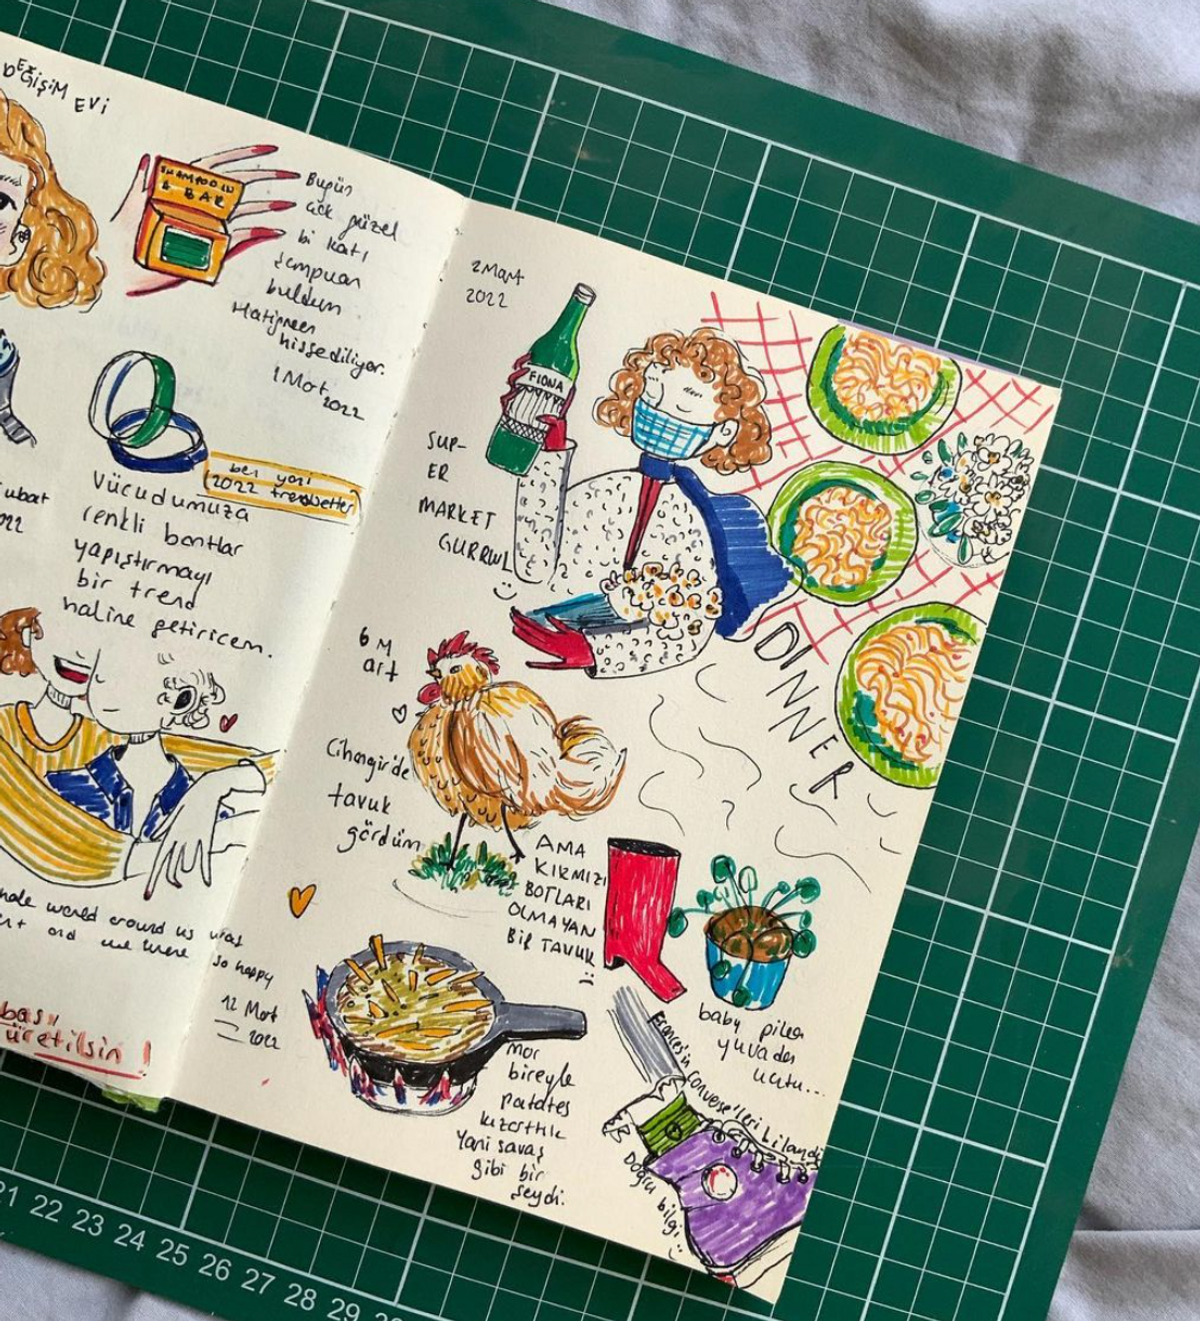 DEĞİŞİM
EVİ
SHAMPOO IN
A BAR
Bugün
çok güzel
bi katı
şampuan
buldum
hissediliyor.
1 Mart
2022
ben yani
2022 trendsetter
Vücudumuza
renkli bantlar
yapıştırmayı
bir trend
haline getiricem.
ubat
022
hole world around us was
and we were so happy
bası
üretilsin !
2 Mart
2022
FIONA
SUP-
ER
MARKET
GURRUL
DINNER
6 M
art
Cihangir'de
tavuk
gördüm
AMA
KIRMIZI
BOTLARI
OLMAYAN
BİR TAVUK
12 Mart
2022
Mor
bireyle
patates
kızarttık
Yani savaş
gibi bir
şeydi.
baby pilea
yuvadan
uçtu...
Frances'in Converse'leri Lilandi
Doğru bilgi
21 22 23 24 25 26 27 28 29